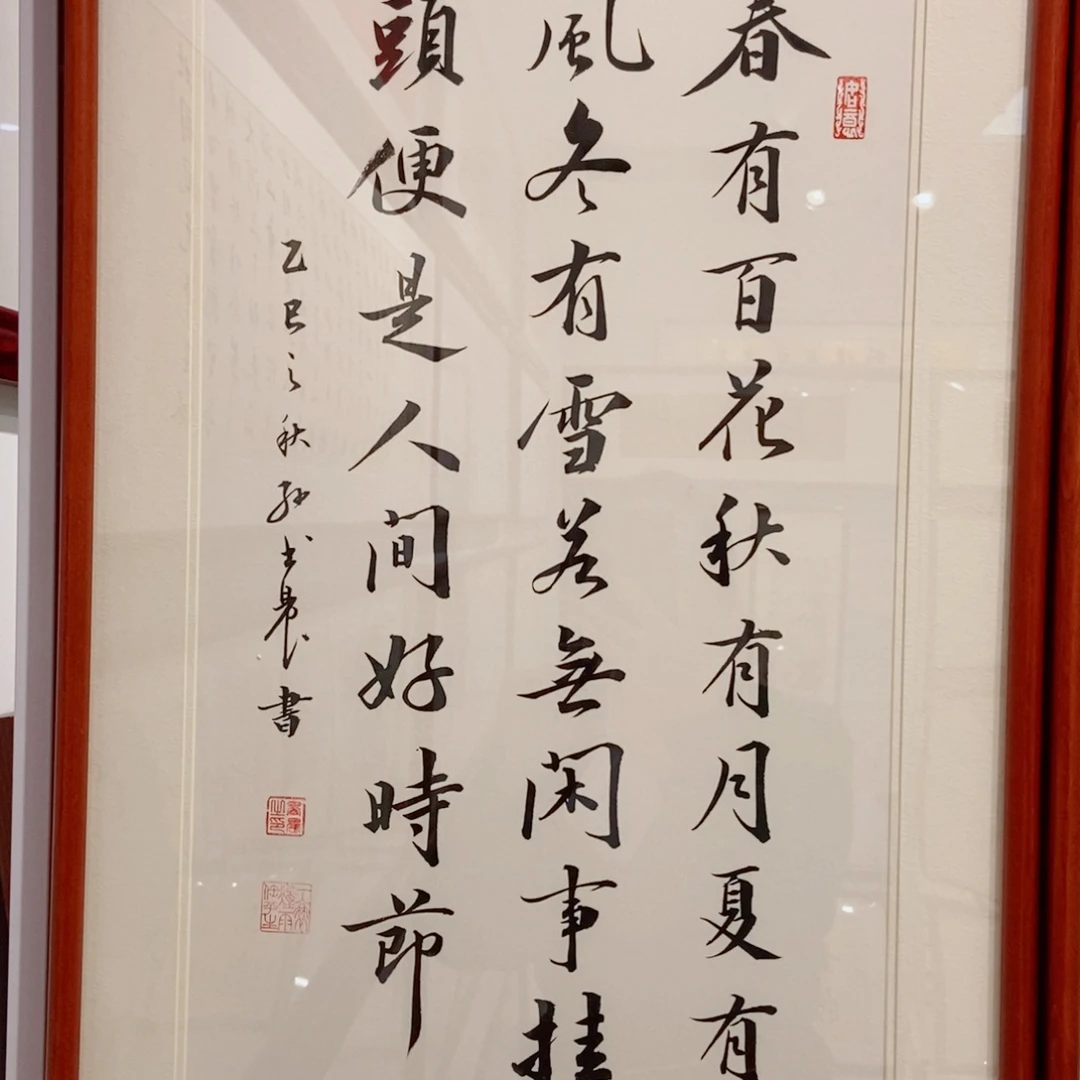 春有百花秋有月夏有
風冬有雪若無閑事挂
頭便是人間好時節
乙巳之秋孙士晨書